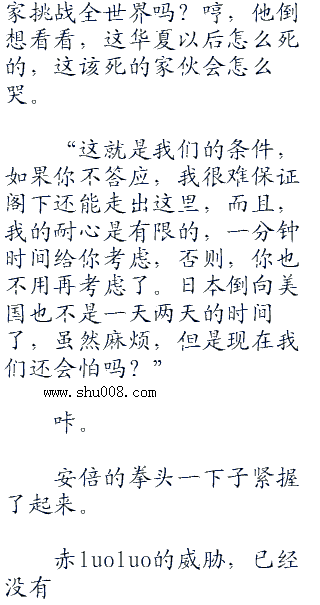 家挑战全世界吗？哼，他倒
想看看，这华夏以后怎么死
的，这该死的家伙会怎么
哭。
“这就是我们的条件，
如果你不答应，我很难保证
阁下还能走出这里，而且，
我的耐心是有限的，一分钟
时间给你考虑，否则，你也
不用再考虑了。日本倒向美
国也不是一天两天的时间
了，虽然麻烦，但是现在我
们还会怕吗？”
www.shu008.com
咔。
安倍的拳头一下子紧握
了起来。
赤luoluo的威胁，已经
没有